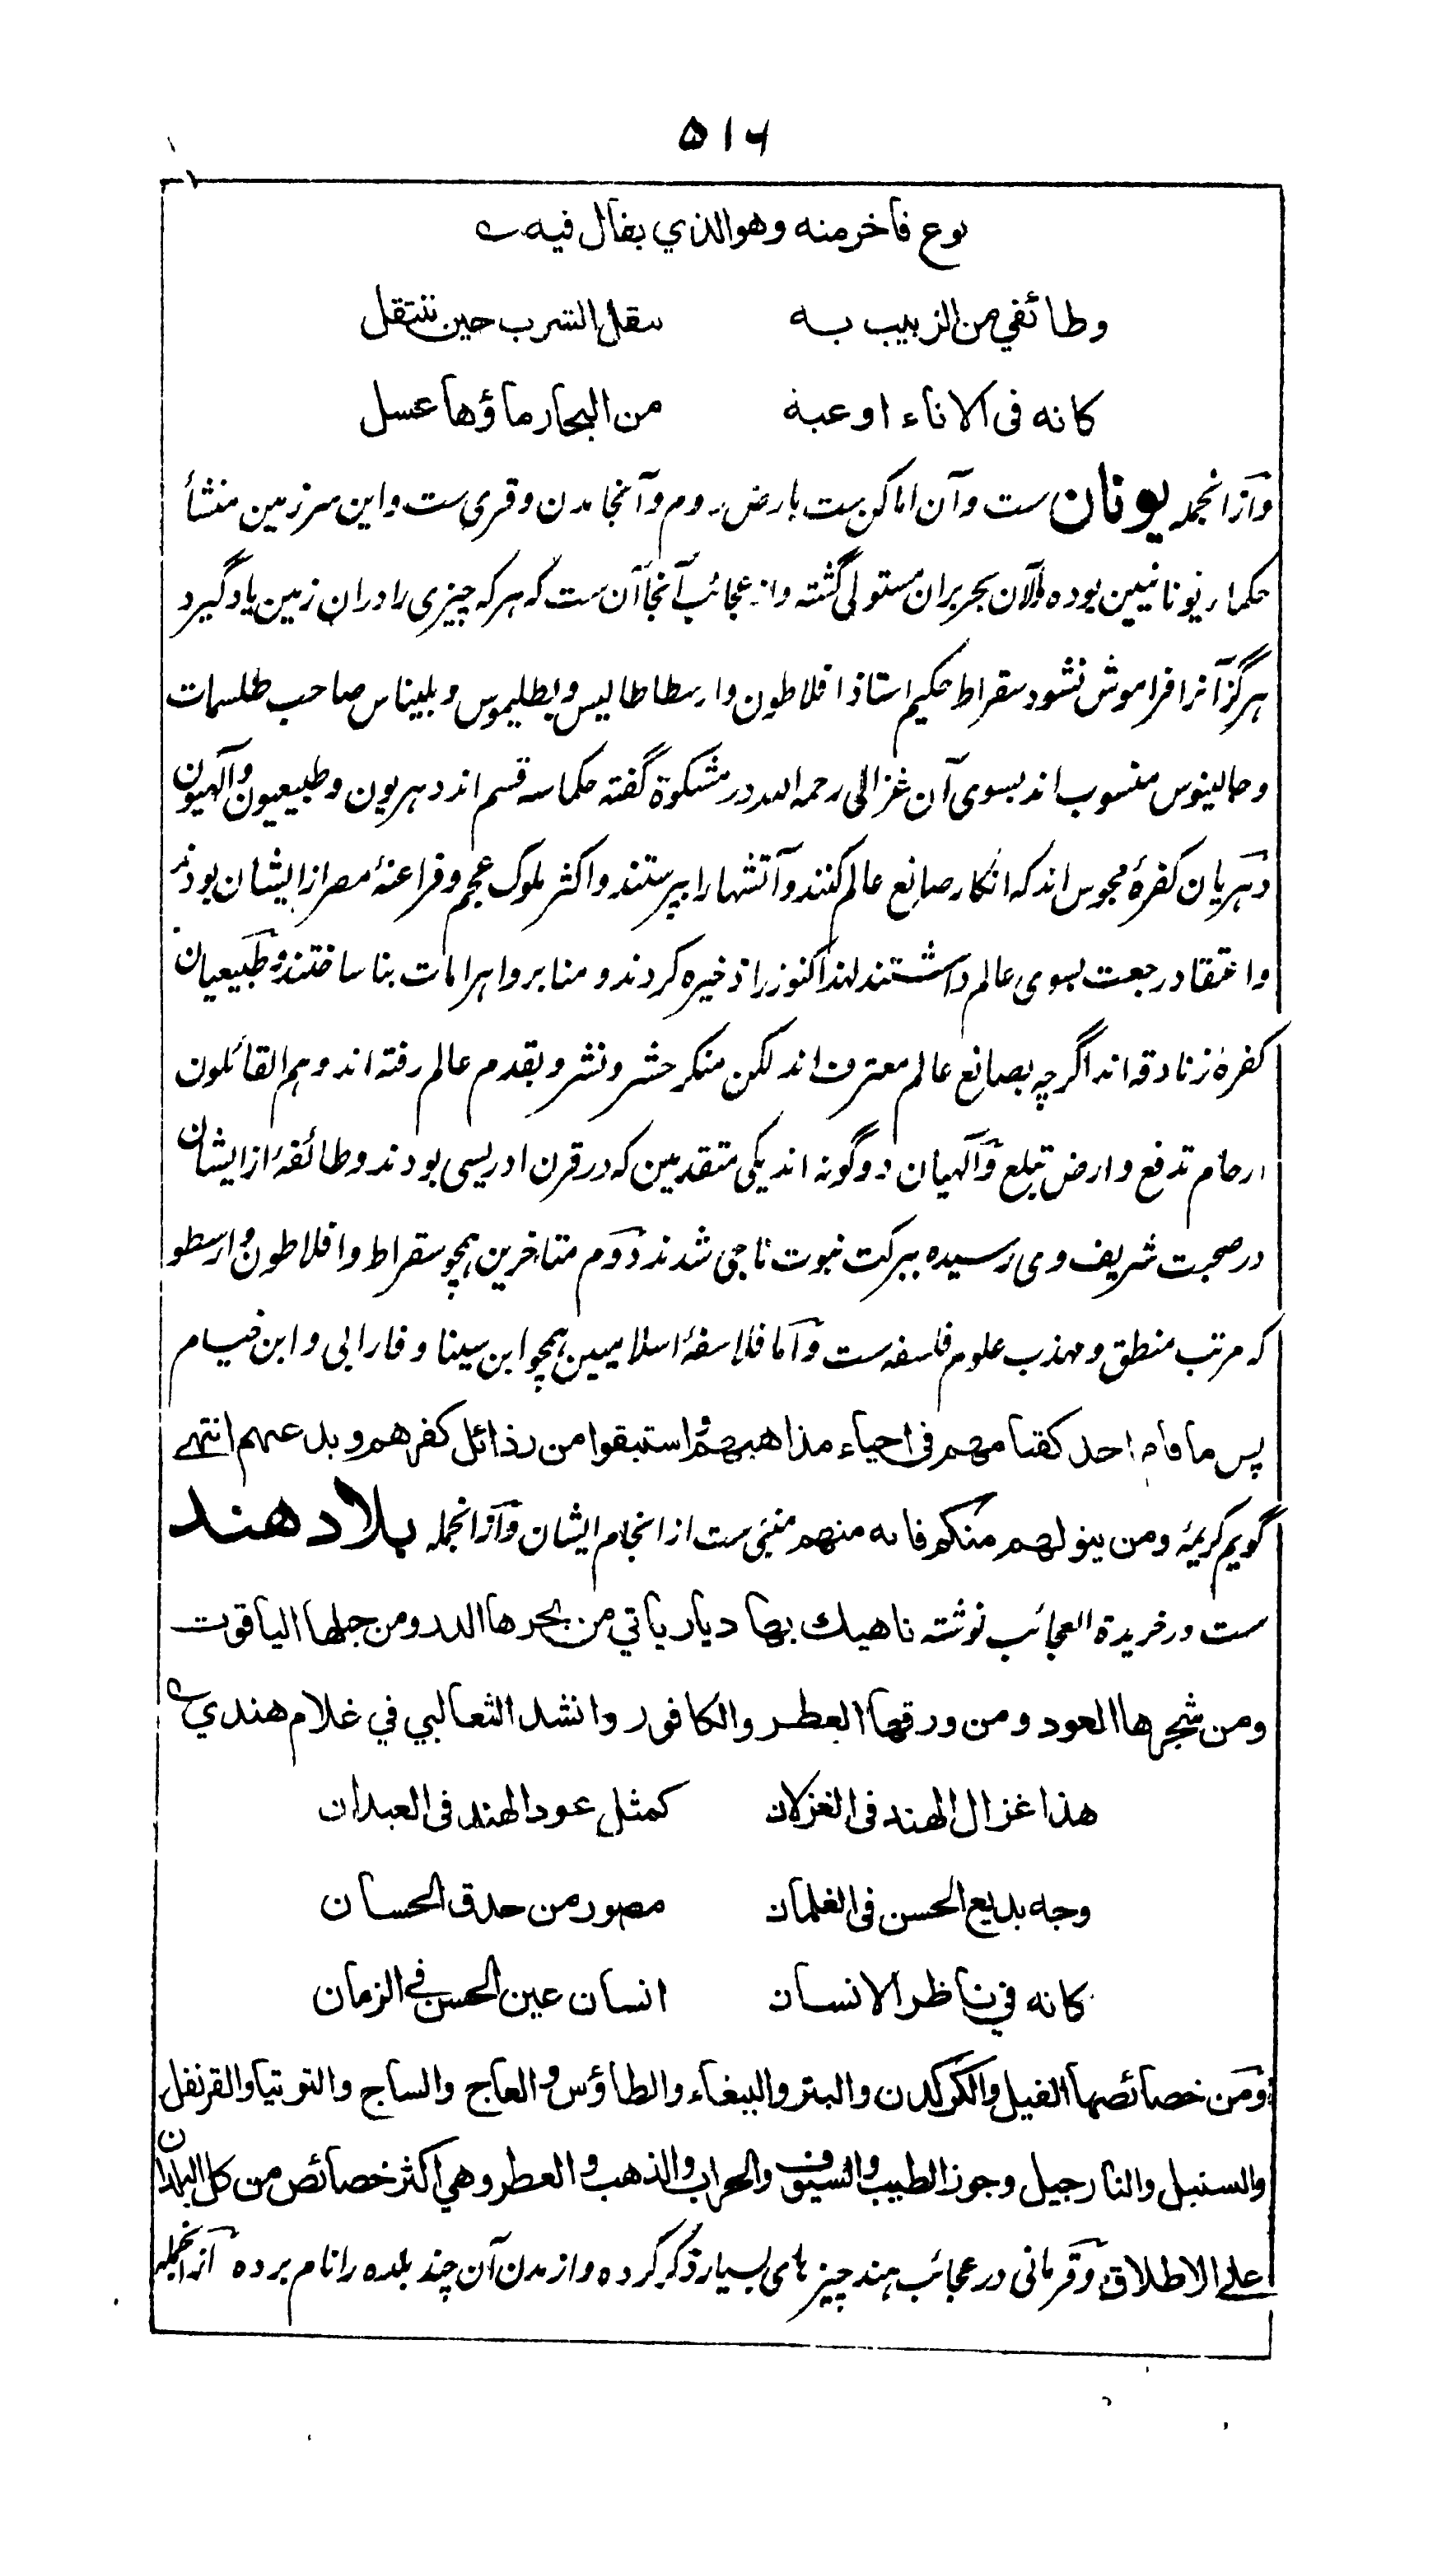 ۵۱۶
نوع فاخر منه وهو الذي يقال فيه
وطائفي من الزبيب به
ينقل الشرب حين تنتقل
كانه فى الاناء اوعية
من البحار ماؤها عسل
وازانجمله یونان ست وآن اماکن ست بارض روم وآنجا مدن وقری ست واین سرزمین منشأ
حکماء یونانیین بوده والآن بحر بران مستولی گشته واز عجائب آنجا آن ست که هرکه چیزی را دران زمین یاد گیرد
هرگز آنرا فراموش نشود سقراط حکیم استاذ افلاطون وارسطاطالیس وبطلیموس وبلیناس صاحب طلسمات
وجالینوس منسوب اند بسوی آن غزالی رحمه الله در مشکوة گفته حکما سه قسم اند دهریون وطبیعیون والهیون
دهریان کفرهٔ مجوس اند که انکار صانع عالم کنند وآتشها را بپرستند واکثر ملوک عجم وفراعنهٔ مصر ازایشان بودند
واعتقاد رجعت بسوی عالم داشتند لهذا کنوز را ذخیره کردند ومنابر واهرامات بنا ساختند وطبیعیان
کفرهٔ زنادقه اند اگرچه بصانع عالم معترف اند لکن منکر حشر ونشر وبقدم عالم رفته اند وهم القائلون
ارحام تدفع وارض تبلع والهیان دوگونه اند یکی متقدمین که در قرن ادریسی بودند وطائفهٔ ازایشان
در صحبت شریف وی رسیده ببرکت نبوت ناجی شدند دوم متاخرین همچو سقراط وافلاطون وارسطو
که مرتب منطق ومهذب علوم فلسفه ست واما فلاسفهٔ اسلامیین همچو ابن سینا وفارابی وابن خیام
پس ما قام احد كقيامهم فى احياء مذاهبهم واستبقوا من رذائل كفرهم وبدعهم انتهى
گویم کریمهٔ ومن يتولهم منكم فانه منهم منبئ ست از انجام ایشان وازانجمله بلاد هند
ست در خریدة العجائب نوشته ناهيك بها ديار ياتي من بحرها الدر ومن جبلها الياقوت
ومن شجرها العود ومن ورقها العطر والكافور وانشد الثعالبي في غلام هندي
هذا غزال الهند فى الغزلان
كمثل عود الهند فى العيدان
وجه بديع الحسن فى الغلمان
مصور من حدق الحسان
كانه في ناظر الانسان
انسان عين الحسن في الزمان
ومن خصائصها الفيل والكركدن والببر والببغاء والطاؤس والعاج والساج والتوتيا والقرنفل
والسنبل والنارجيل وجوز الطيب والسيوف والحراب والذهب والعطر وهي اكثر خصائص من كل البلدان
على الاطلاق وقرمانی در عجائب هند چیزهای بسیار ذکر کرده واز مدن آن چند بلده را نام برده ازانجمله